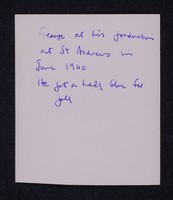 George at his graduation
at St Andrews in
June 1940
He got a half blue for
golf